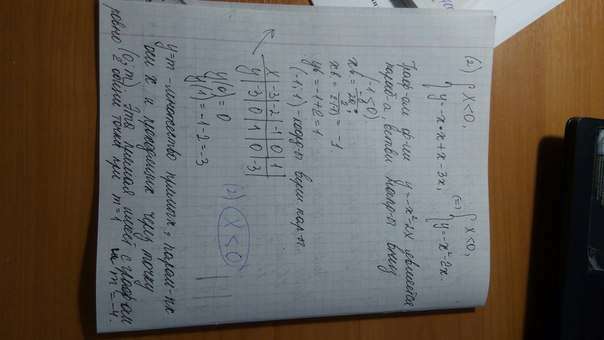 (2) { x < 0, y = -x·x + x - 3x, (=) { x < 0, y = -x² - 2x.
Граф-ом ф-ии y = -x² - 2x является
парабола, ветви направл-ы вниз
(-1 < 0)
xв = -b/2a;
xв = = -1
yв = -1 + 2 = 1
(-1; 1) - коорд-ы верш пар-ы.
x | -3 | -2 | -1 | 0 | 1
y | -3 | 0 | 1 | 0 | 3
(2) x < 0
y(0) = 0
y(1) = -1 - 2 = -3
y = m - множество прямых, парал-ых
оси x и проходящих через точку
(0; m). Эта прямая имеет с графом
ровно 2 общие точки при m = 1
и m = -4.